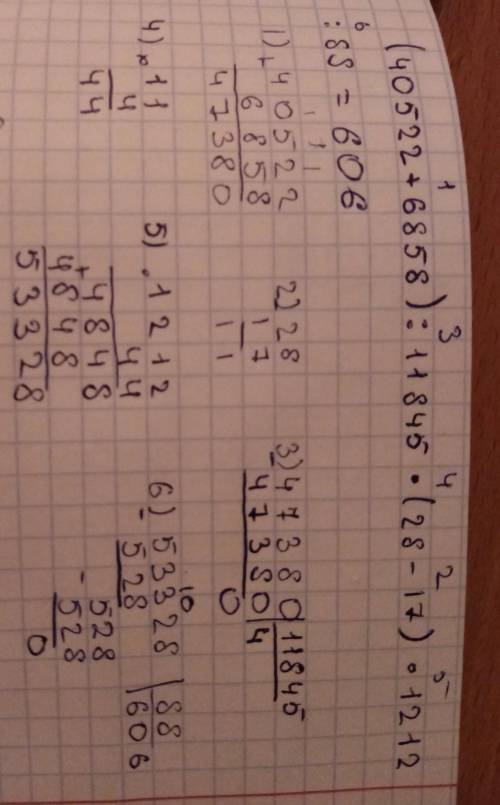 1 3 4 2 5
(40522+6858):11845·(28-17)·1212
6
:88=606
1) +40522
6858
47380
2) 28
17
11
3) 47380 | 11845
47380 | 4
0
4) ×11
4
44
5) ·1212
44
+4848
4848
53328
6) 53328 | 88
528 | 606
528
-528
0